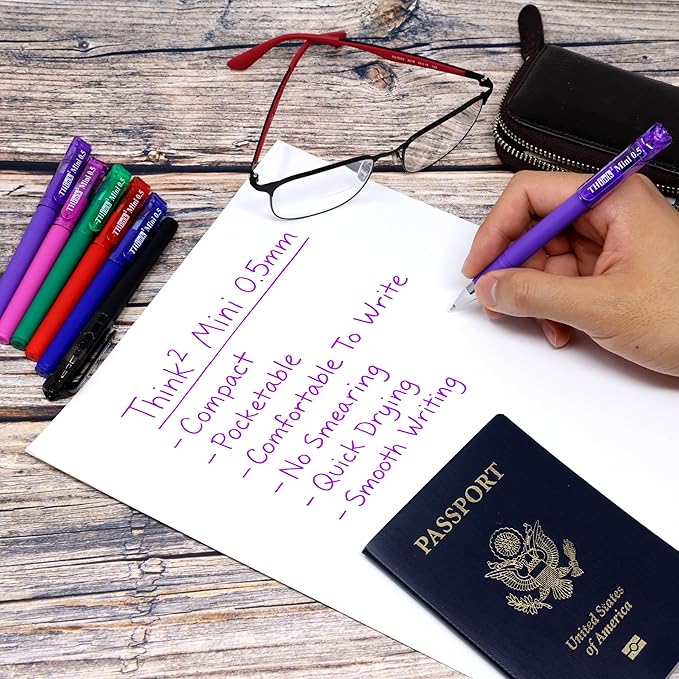 Think² Mini 0.5mm
- Compact
- Pocketable
- Comfortable To Write
- No Smearing
- Quick Drying
- Smooth Writing
THInk² Mini 0.5
THInk² Mini 0.5
THInk² Mini 0.5
THInk² Mini 0.5
THInk² Mini 0.5
THInk² Mini 0.5
PASSPORT
United States
of America